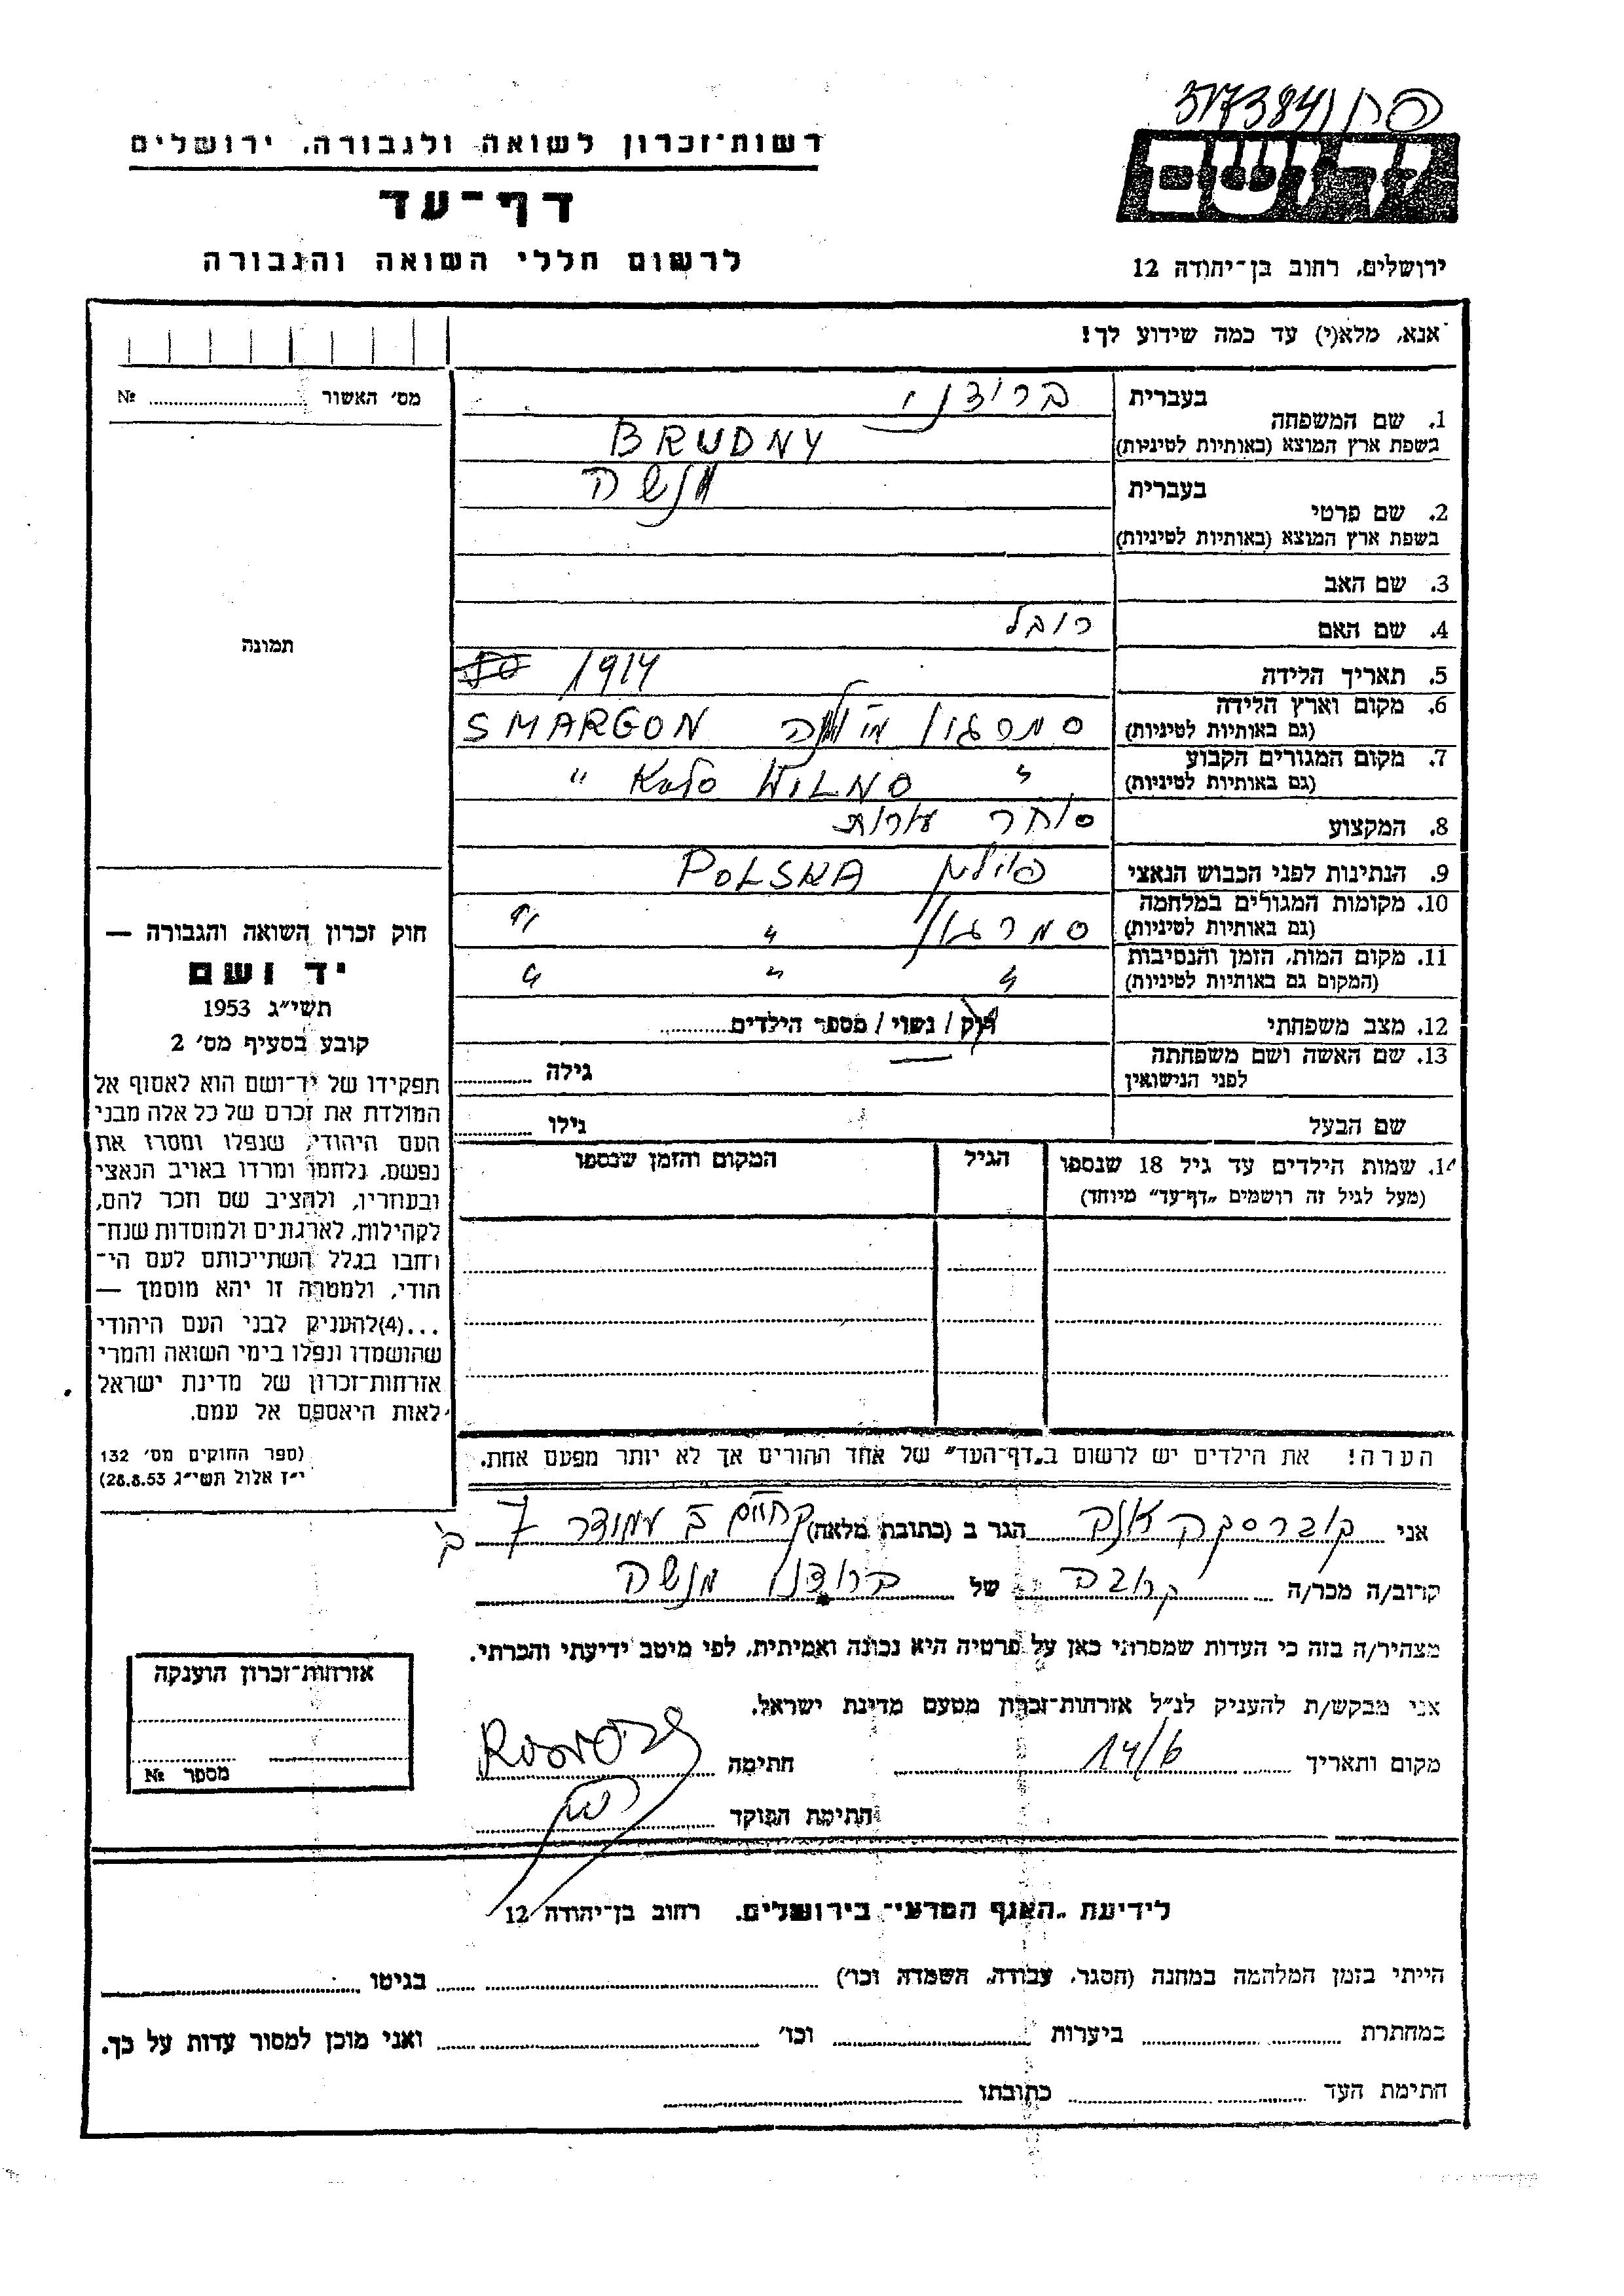 317384
רשות־זכרון לשואה ולגבורה, ירושלים
יד ושם
דף־עד
לרשום חללי השואה והגבורה
ירושלים, רחוב בן־יהודה 12
אנא, מלא(י) עד כמה שידוע לך!
מס׳ האשור № 
1. שם המשפחה
בעברית ברודני
בשפת ארץ המוצא (באותיות לטיניות) BRUDNY
2. שם פרטי
בעברית מנשה
בשפת ארץ המוצא (באותיות לטיניות)
3. שם האב
4. שם האם רובל
5. תאריך הלידה 1914
6. מקום וארץ הלידה
(גם באותיות לטיניות) סמרגון SMARGON
7. מקום המגורים הקבוע
(גם באותיות לטיניות) " Koło WILNO "
8. המקצוע סוחר עורות
9. הנתינות לפני הכבוש הנאצי פולין POLSKA
10. מקומות המגורים במלחמה
(גם באותיות לטיניות) סמרגון " "
11. מקום המות, הזמן והנסיבות
(המקום גם באותיות לטיניות) " " "
12. מצב משפחתי רוק / נשוי / מספר הילדים
13. שם האשה ושם משפחתה
לפני הנישואין גילה
שם הבעל גילו
14. שמות הילדים עד גיל 18 שנספו הגיל המקום והזמן שנספו
(מעל לגיל זה רושמים „דף־עד" מיוחד)
הערה! את הילדים יש לרשום ב„דף־העד" של אחד ההורים אך לא יותר מפעם אחת.
תמונה
חוק זכרון השואה והגבורה —
יד ושם
תשי״ג 1953
קובע בסעיף מס׳ 2
תפקידו של יד־ושם הוא לאסוף אל
המולדת את זכרם של כל אלה מבני
העם היהודי, שנפלו ומסרו את
נפשם, נלחמו ומרדו באויב הנאצי
ובעוזריו, ולהציב שם וזכר להם,
לקהילות, לארגונים ולמוסדות שנח־
רבו בגלל השתייכותם לעם הי־
הודי, ולמטרה זו יהא מוסמך —
...(4)להעניק לבני העם היהודי
שהושמדו ונפלו בימי השואה והמרי
אזרחות־זכרון של מדינת ישראל
לאות היאספם אל עמם.
(ספר החוקים מס׳ 132
י״ז אלול תשי״ג 28.8.53)
אני קוברסקה הגר ב (כתובת מלאה) 7 ב'
קרוב/ה מכר/ה קרובה של ברודני מנשה
מצהיר/ה בזה כי העדות שמסרתי כאן על פרטיה היא נכונה ואמיתית, לפי מיטב ידיעתי והכרתי.
אני מבקש/ת להעניק לנ״ל אזרחות־זכרון מטעם מדינת ישראל.
מקום ותאריך 14/6 חתימה
חתימת הפוקד
אזרחות־זכרון הוענקה
מספר №
לידיעת „האגף המדעי" בירושלים, רחוב בן־יהודה 12
הייתי בזמן המלחמה במחנה (הסגר, עבודה, השמדה וכו׳) בגיטו
במחתרת ביערות וכו׳ ואני מוכן למסור עדות על כך.
חתימת העד כתובתו